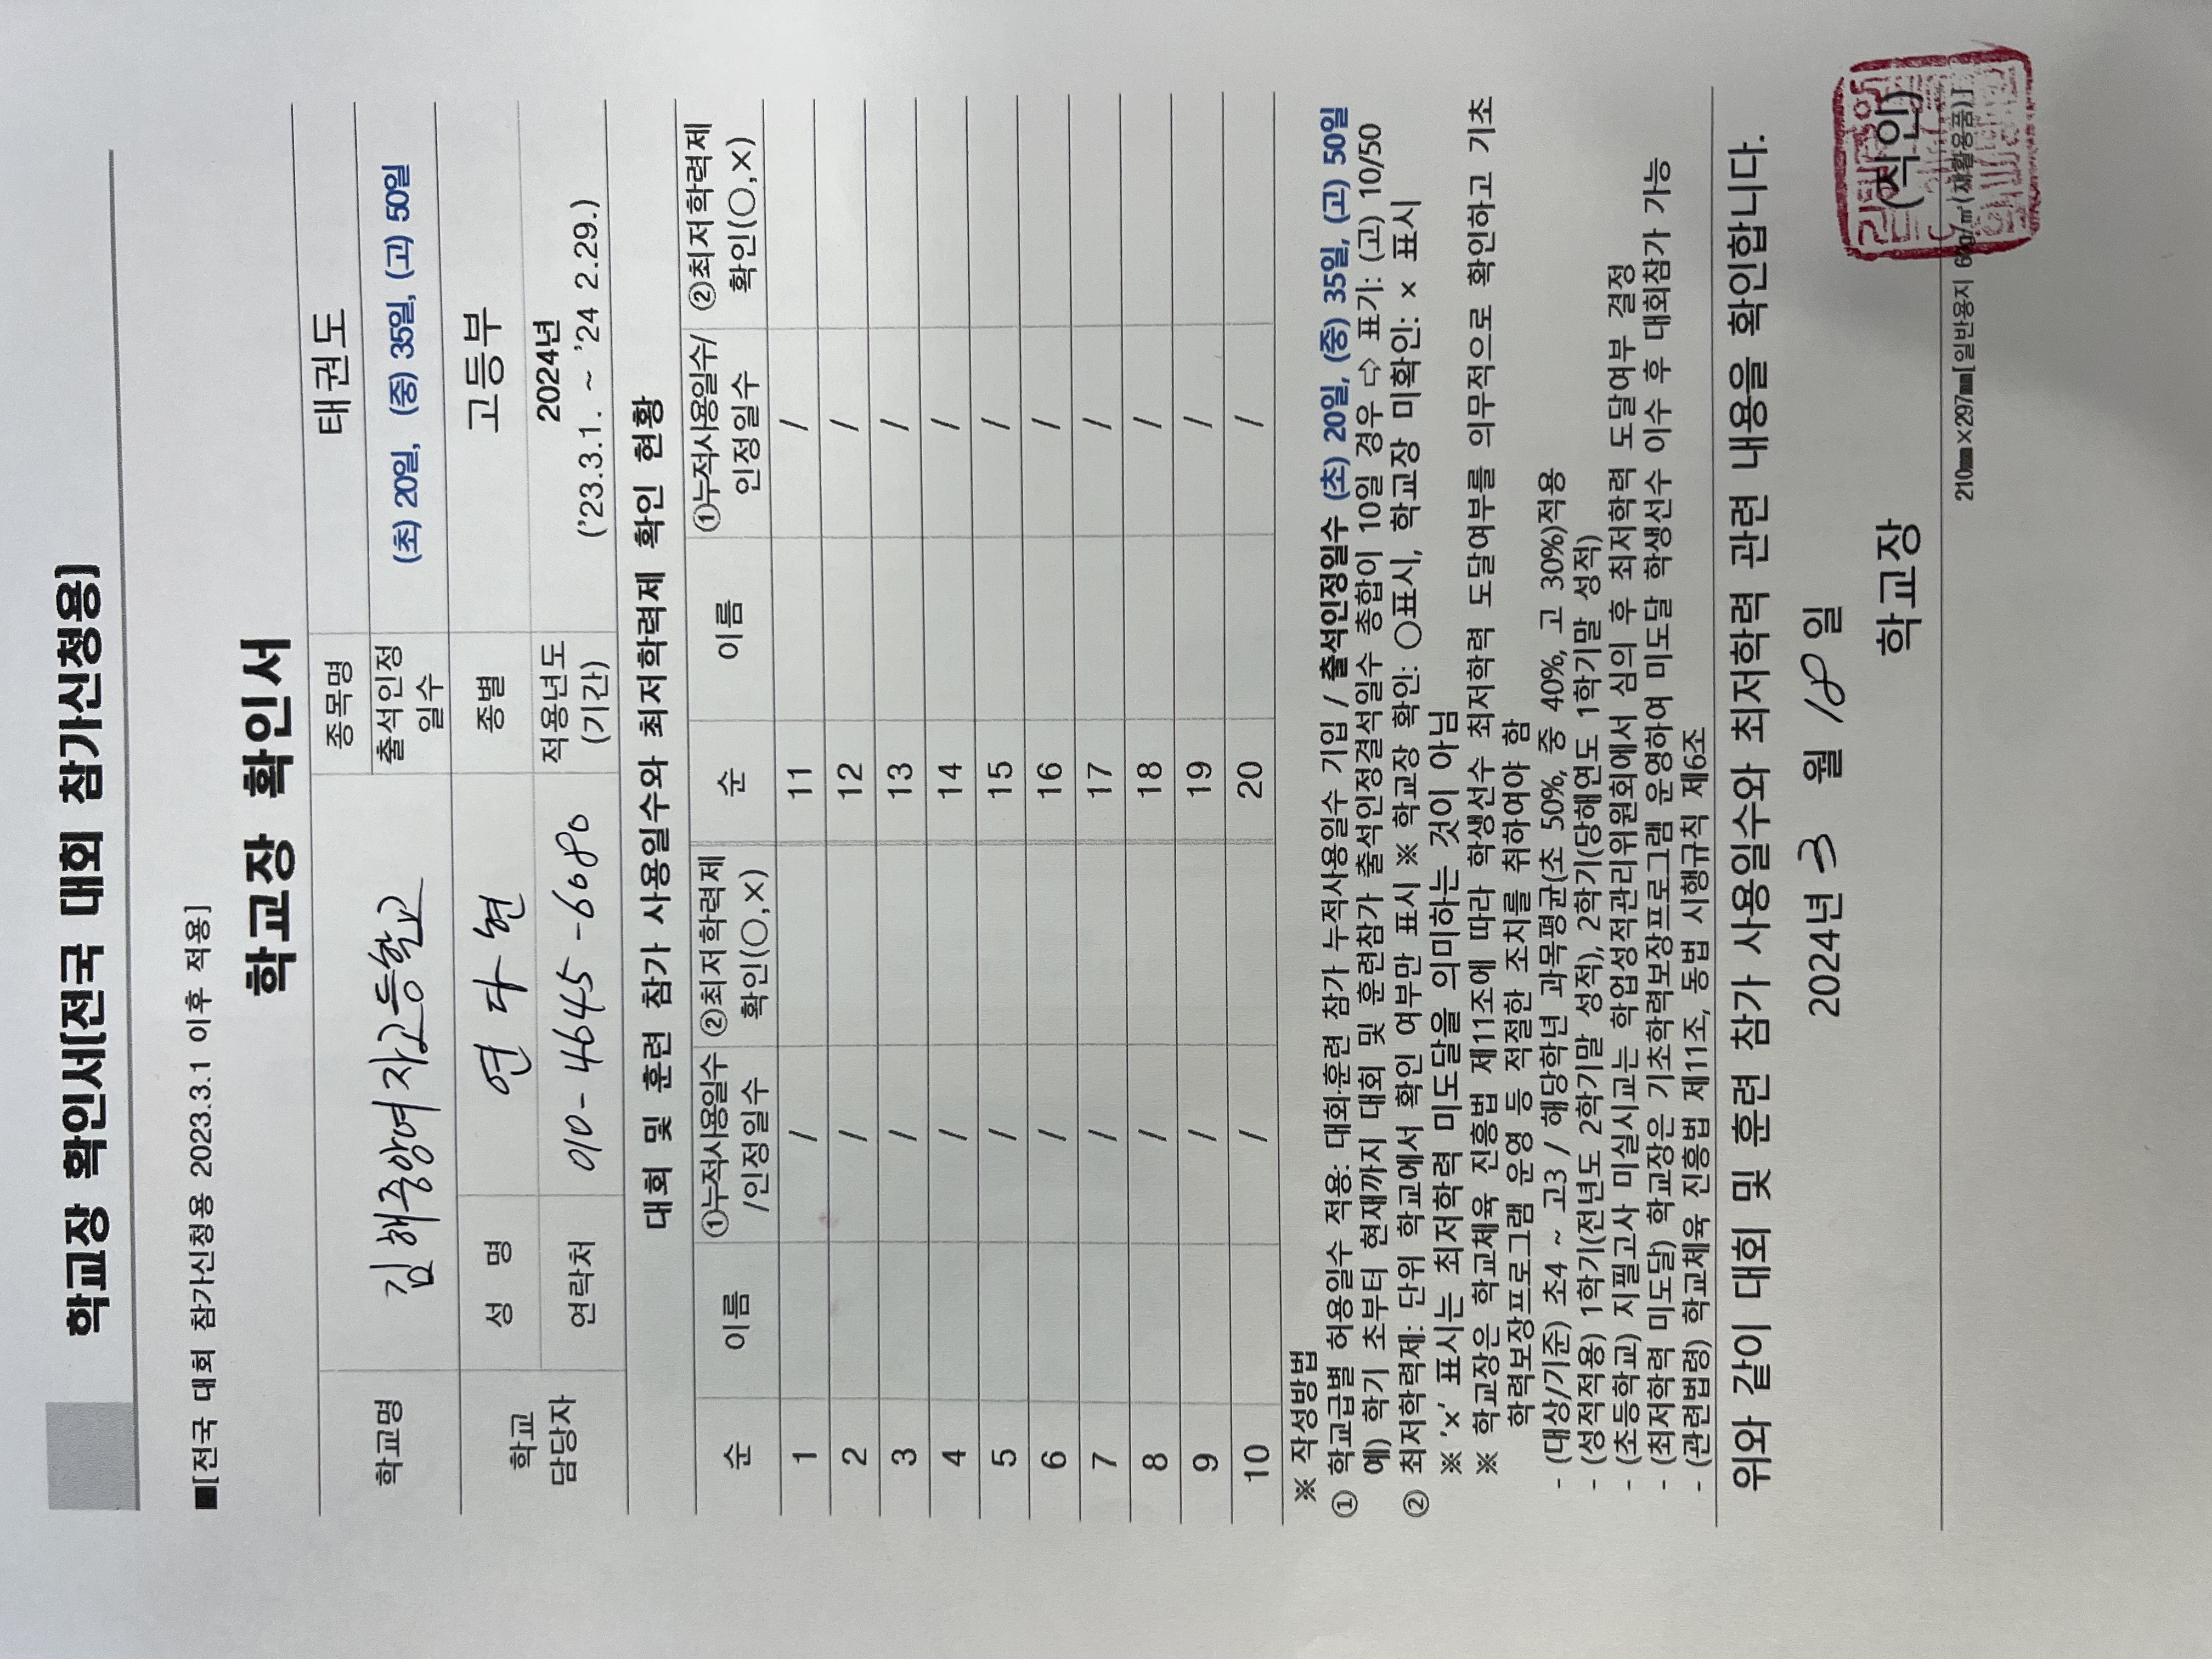 학교장 확인서[전국 대회 참가신청용]
■[전국 대회 참가신청용 2023.3.1 이후 적용]
학교장 확인서
학교명 김해중앙여자고등학교 종목명 태권도
출석인정일수 (초) 20일, (중) 35일, (고) 50일
학교 담당자 성 명 연다현 종별 고등부
연락처 010-4645-6080 적용년도(기간) 2024년
('23.3.1. ~ '24 2.29.)
대회 및 훈련 참가 사용일수와 최저학력제 확인 현황
순 이름 ①누적사용일수/인정일수 ②최저학력제 확인(○,×) 순 이름 ①누적사용일수/인정일수 ②최저학력제 확인(○,×)
1 / 11 /
2 / 12 /
3 / 13 /
4 / 14 /
5 / 15 /
6 / 16 /
7 / 17 /
8 / 18 /
9 / 19 /
10 / 20 /
※ 작성방법
① 학교급별 허용일수 적용: 대회·훈련 참가 누적사용일수 기입 / 출석인정일수 (초) 20일, (중) 35일, (고) 50일
예) 학기 초부터 현재까지 대회 및 훈련참가 출석인정결석일수 총합이 10일 경우 ⇨ 표기: (고) 10/50
② 최저학력제: 단위 학교에서 확인 여부만 표시 ※ 학교장 확인: ○표시, 학교장 미확인: × 표시
※ 'x' 표시는 최저학력 미도달을 의미하는 것이 아님
※ 학교장은 학교체육 진흥법 제11조에 따라 학생선수 최저학력 도달여부를 의무적으로 확인하고 기초
학력보장프로그램 운영 등 적절한 조치를 취하여야 함
- (대상/기준) 초4 ~ 고3 / 해당학년 과목평균(초 50%, 중 40%, 고 30%)적용
- (성적적용) 1학기(전년도 2학기말 성적), 2학기(당해연도 1학기말 성적)
- (초등학교) 지필고사 미실시교는 학업성적관리위원회에서 심의 후 최저학력 도달여부 결정
- (최저학력 미도달) 학교장은 기초학력보장프로그램 운영하여 미도달 학생선수 이수 후 대회참가 가능
- (관련법령) 학교체육 진흥법 제11조, 동법 시행규칙 제6조
위와 같이 대회 및 훈련 참가 사용일수와 최저학력 관련 내용을 확인합니다.
2024년 3 월 18 일
학교장 (직인)
210㎜×297㎜[일반용지 60g/㎡(재활용품)]